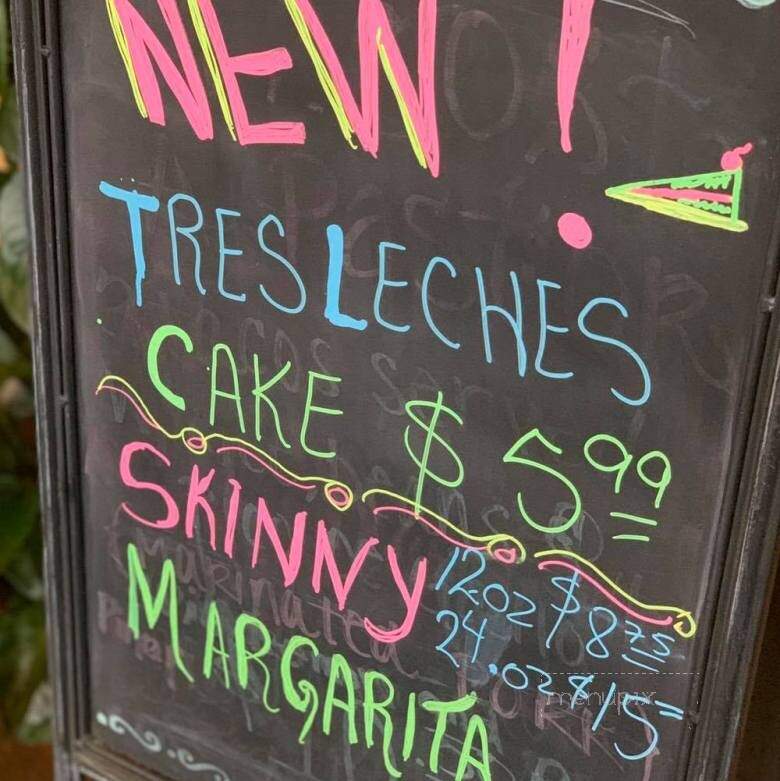 NEW!
TRES LECHES
CAKE $5.99
SKINNY
MARGARITA
12oz $8.75
24.oz $15=
menupix